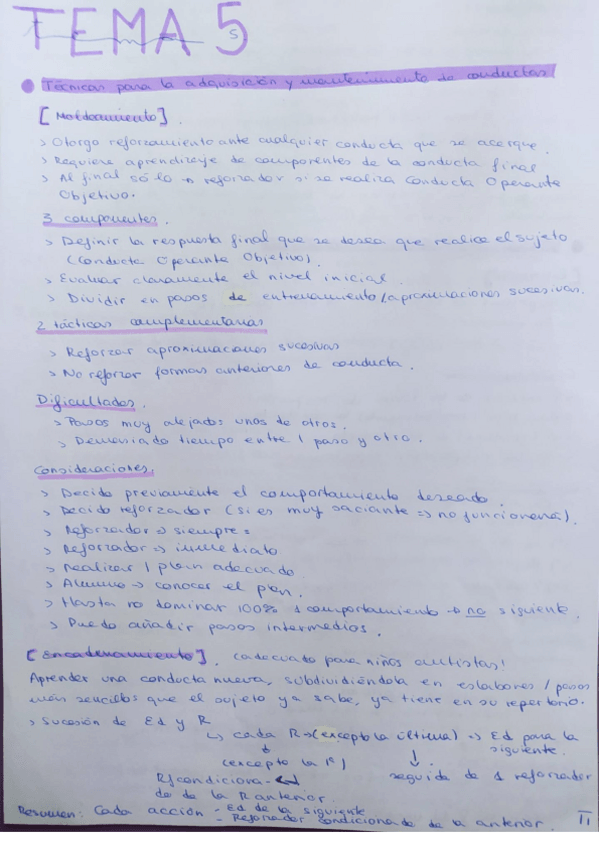 TEMA 5
Técnicas para la adquisición y mantenimiento de conductas
[Moldeamiento].
> Otorgo reforzamiento ante cualquier conducta que se acerque.
> Requiere aprendizaje de componentes de la conducta final
> Al final sólo reforzador si se realiza Conducta Operante
Objetivo.
3 componentes.
> Definir la respuesta final que se desea que realice el sujeto
(Conducta Operante Objetivo)
> Evaluar claramente el nivel inicial.
> Dividir en pasos de entrenamiento/aproximaciones sucesivas.
2 tácticas complementarias
> Reforzar aproximaciones sucesivas
> No reforzar formas anteriores de conducta.
Dificultades.
> Pasos muy alejados unos de otros.
> Demasiado tiempo entre 1 paso y otro.
Consideraciones.
> Decido previamente el comportamiento deseado.
> Decido reforzador (si es muy saciante => no funcionará).
> Reforzador => siempre
> Reforzador => inmediato
> Realizar 1 plan adecuado
> Alumno -> conocer el plan.
> Hasta no dominar 100% 1 comportamiento -> no siguiente.
> Puedo añadir pasos intermedios.
[Encadenamiento]. (adecuado para niños autistas!
Aprender una conducta nueva, subdividiéndola en eslabones / pasos
más sencillos que el sujeto ya sabe, ya tiene en su repertorio.
> Sucesión de Ed y R
↳ cada R -> (excepto la última) => Ed para la
siguiente.
(excepto la 1ª)
Rf condiciona-
seguida de 1 reforzador
do de la R anterior.
Resumen: Cada acción - Ed de la siguiente
- Reforzador condicionado de la anterior.
11